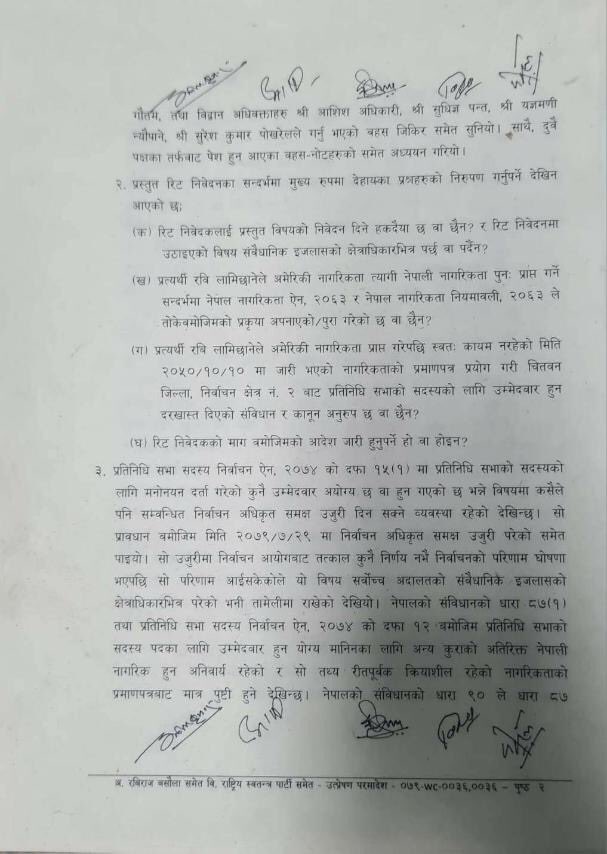 गौतम, तथा विद्वान अधिवक्ताहरु श्री आशिश अधिकारी, श्री सुधिज्ञ पन्त, श्री यज्ञमणी
न्यौपाने, श्री सुरेश कुमार पोखरेलले गर्नु भएको बहस जिकिर समेत सुनियो। साथै, दुवै
पक्षका तर्फबाट पेश हुन आएका बहस-नोटहरुको समेत अध्ययन गरियो।
२. प्रस्तुत रिट निवेदनका सन्दर्भमा मुख्य रुपमा देहायका प्रश्नहरुको निरुपण गर्नुपर्ने देखिन
आएको छ;
(क) रिट निवेदकलाई प्रस्तुत विषयको निवेदन दिने हकदैया छ वा छैन? र रिट निवेदनमा
उठाइएको विषय संवैधानिक इजलासको क्षेत्राधिकारभित्र पर्छ वा पर्दैन?
(ख) प्रत्यर्थी रवि लामिछानेले अमेरिकी नागरिकता त्यागी नेपाली नागरिकता पुनः प्राप्त गर्ने
सन्दर्भमा नेपाल नागरिकता ऐन, २०६३ र नेपाल नागरिकता नियमावली, २०६३ ले
तोकेबमोजिमको प्रकृया अपनाएको/पुरा गरेको छ वा छैन?
(ग) प्रत्यर्थी रवि लामिछानेले अमेरिकी नागरिकता प्राप्त गरेपछि स्वतः कायम नरहेको मिति
२०५०/१०/१० मा जारी भएको नागरिकताको प्रमाणपत्र प्रयोग गरी चितवन
जिल्ला, निर्वाचन क्षेत्र नं. २ बाट प्रतिनिधि सभाको सदस्यको लागि उम्मेदवार हुन
दरखास्त दिएको संविधान र कानून अनुरुप छ वा छैन?
(घ) रिट निवेदकको माग बमोजिमको आदेश जारी हुनुपर्ने हो वा होइन?
३. प्रतिनिधि सभा सदस्य निर्वाचन ऐन, २०७४ को दफा १५(१) मा प्रतिनिधि सभाको सदस्यको
लागि मनोनयन दर्ता गरेको कुनै उम्मेदवार अयोग्य छ वा हुन गएको छ भन्ने विषयमा कसैले
पनि सम्वन्धित निर्वाचन अधिकृत समक्ष उजुरी दिन सक्ने व्यवस्था रहेको देखिन्छ। सो
प्रावधान बमोजिम मिति २०७९/७/२९ मा निर्वाचन अधिकृत समक्ष उजुरी परेको समेत
पाइयो। सो उजुरीमा निर्वाचन आयोगबाट तत्काल कुनै निर्णय नभै निर्वाचनको परिणाम घोषणा
भएपछि सो परिणाम आईसकेकोले यो विषय सर्वोच्च अदालतको संवैधानिक इजलासको
क्षेत्राधिकारभित्र परेको भनी तामेलीमा राखेको देखियो। नेपालको संविधानको धारा ८७(१)
तथा प्रतिनिधि सभा सदस्य निर्वाचन ऐन, २०७४ को दफा १२ बमोजिम प्रतिनिधि सभाको
सदस्य पदका लागि उम्मेदवार हुन योग्य मानिनका लागि अन्य कुराको अतिरिक्त नेपाली
नागरिक हुन अनिवार्य रहेको र सो तथ्य रीतपूर्वक क्रियाशील रहेको नागरिकताको
प्रमाणपत्रबाट मात्र पुष्टी हुने देखिन्छ। नेपालको संविधानको धारा ९० ले धारा ८७
अ. रबिराज बसौला समेत वि. राष्ट्रिय स्वतन्त्र पार्टी समेत - उत्प्रेषण परमादेश - ०७९-WC-००३५,००३६ - पृष्ठ २